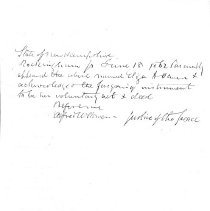 State of New Hampshire
Rockingham ss June 18 1862 Personally
appeared the above named Eliza A and
acknowledged the foregoing instrument
to be his voluntary act & deed
Before me
Alfred Justice of the Peace